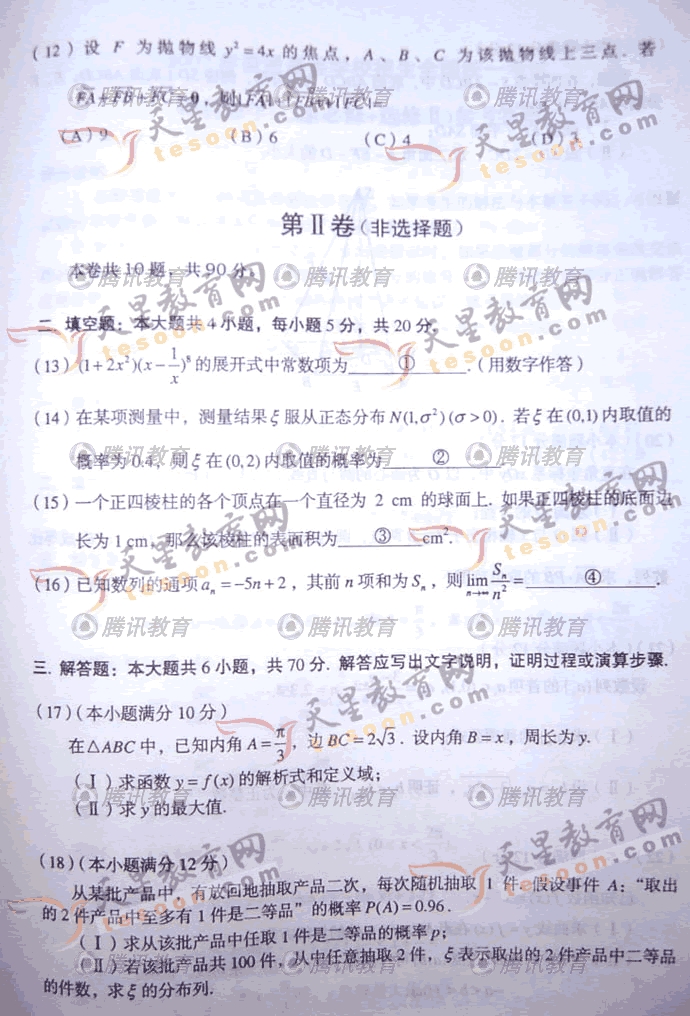 (12) 设 F 为抛物线 y²=4x 的焦点, A、B、C 为该抛物线上三点. 若
FA+FB+FC=0, 则|FA|+|FB|+|FC|=
(A) 9 (B) 6 (C) 4 (D) 3
第Ⅱ卷(非选择题)
本卷共10题, 共90分.
二. 填空题: 本大题共4小题, 每小题5分, 共20分.
(13) (1+2x²)(x-1/x)⁸的展开式中常数项为 ① .(用数字作答)
(14) 在某项测量中, 测量结果ξ服从正态分布N(1,σ²)(σ>0). 若ξ在(0,1)内取值的
概率为0.4, 则ξ在(0,2)内取值的概率为 ②
(15) 一个正四棱柱的各个顶点在一个直径为 2 cm 的球面上. 如果正四棱柱的底面边
长为1 cm, 那么该棱柱的表面积为 ③ cm².
(16) 已知数列的通项 aₙ=-5n+2, 其前 n 项和为 Sₙ, 则 lim n→∞ Sₙ/n² = ④ .
三. 解答题: 本大题共6小题, 共70分. 解答应写出文字说明, 证明过程或演算步骤.
(17) (本小题满分10分)
在△ABC中, 已知内角 A=π/3, 边 BC=2√3. 设内角 B=x, 周长为 y.
(Ⅰ) 求函数 y=f(x) 的解析式和定义域;
(Ⅱ) 求 y 的最大值.
(18) (本小题满分12分)
从某批产品中, 有放回地抽取产品二次, 每次随机抽取 1 件, 假设事件 A: “取出
的2件产品中至多有1件是二等品” 的概率 P(A)=0.96.
(Ⅰ) 求从该批产品中任取1件是二等品的概率 p;
(Ⅱ) 若该批产品共100件, 从中任意抽取2件, ξ表示取出的2件产品中二等品
的件数, 求ξ的分布列.
天星教育网
tesoon.com
腾讯教育